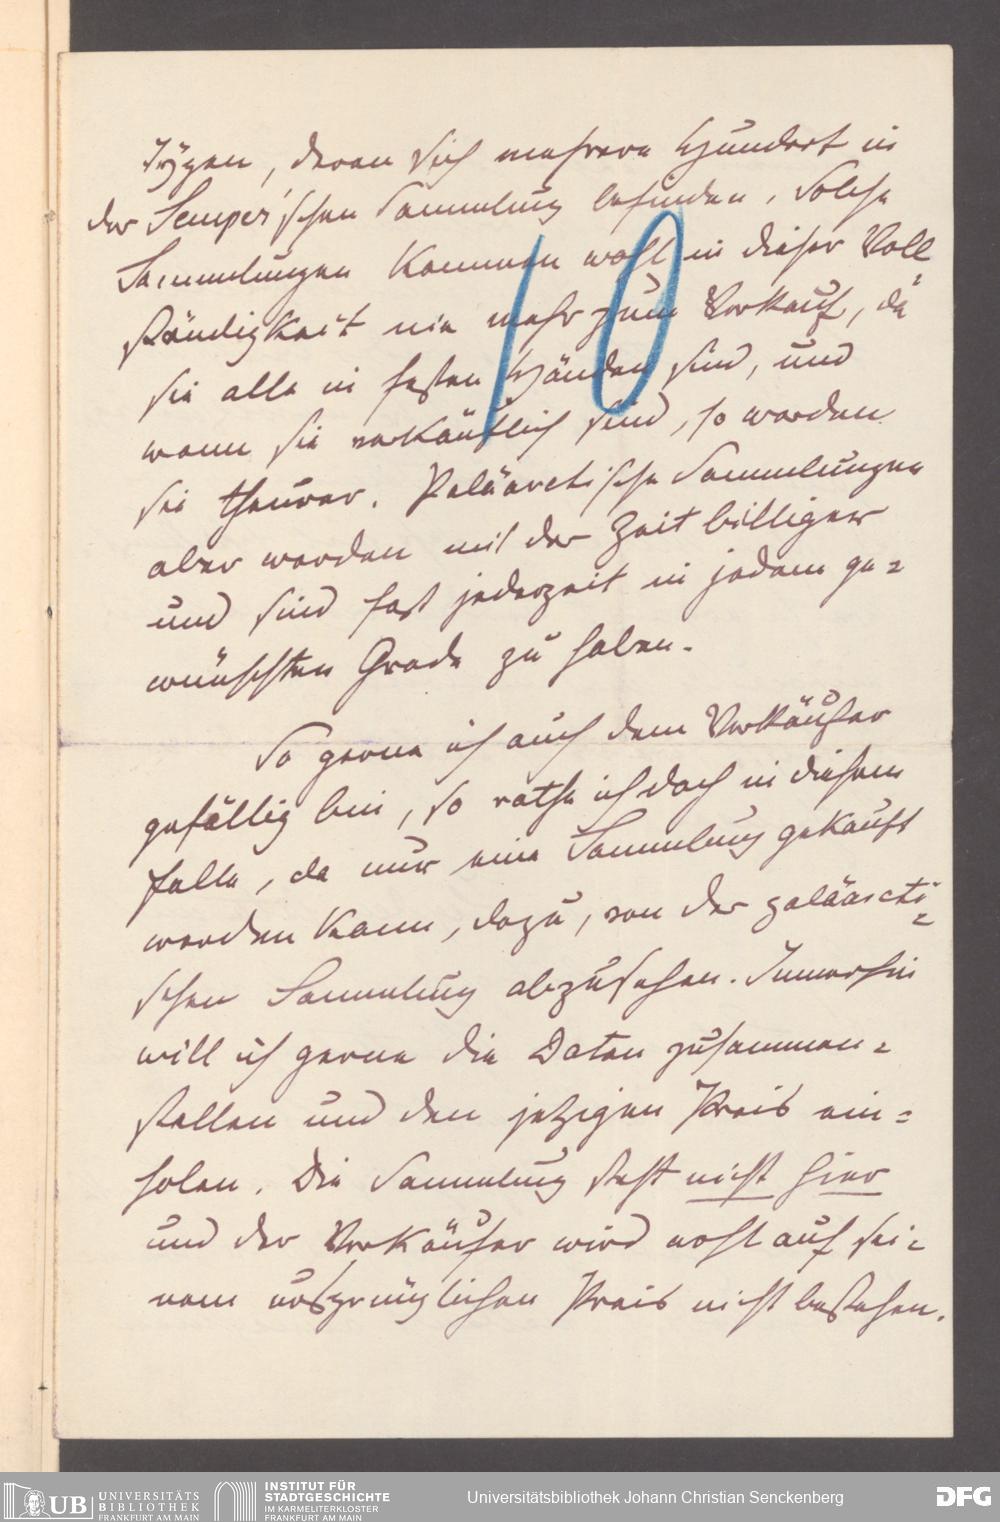 Typen, deren sich mehrere Hundert in
der Semper'schen Sammlung befinden. Solche
Sammlungen kommen wohl in dieser Voll
ständigkeit nie mehr zum Verkauf, da
sie alle in festen Händen sind, und
wenn sie verkäuflich sind, so werden
sie theurer. Paläarctische Sammlungen
aber werden mit der Zeit billiger
und sind fast jederzeit in jedem ge=
wünschten Grade zu haben.
So gerne ich auch dem Verkäufer
gefällig bin, so rathe ich doch in diesem
Falle, da nur eine Sammlung gekauft
werden kann, dazu, von der paläarcti=
schen Sammlung abzusehen. Immerhin
will ich gerne die Daten zusammen=
stellen und den jetzigen Preis ein=
holen. Die Sammlung steht nicht hier
und der Verkäufer wird wohl auf sei=
nem ursprünglichen Preis nicht bestehen.
10
UB UNIVERSITÄTS
BIBLIOTHEK
FRANKFURT AM MAIN
INSTITUT FÜR
STADTGESCHICHTE
IM KARMELITERKLOSTER
FRANKFURT AM MAIN
Universitätsbibliothek Johann Christian Senckenberg
DFG